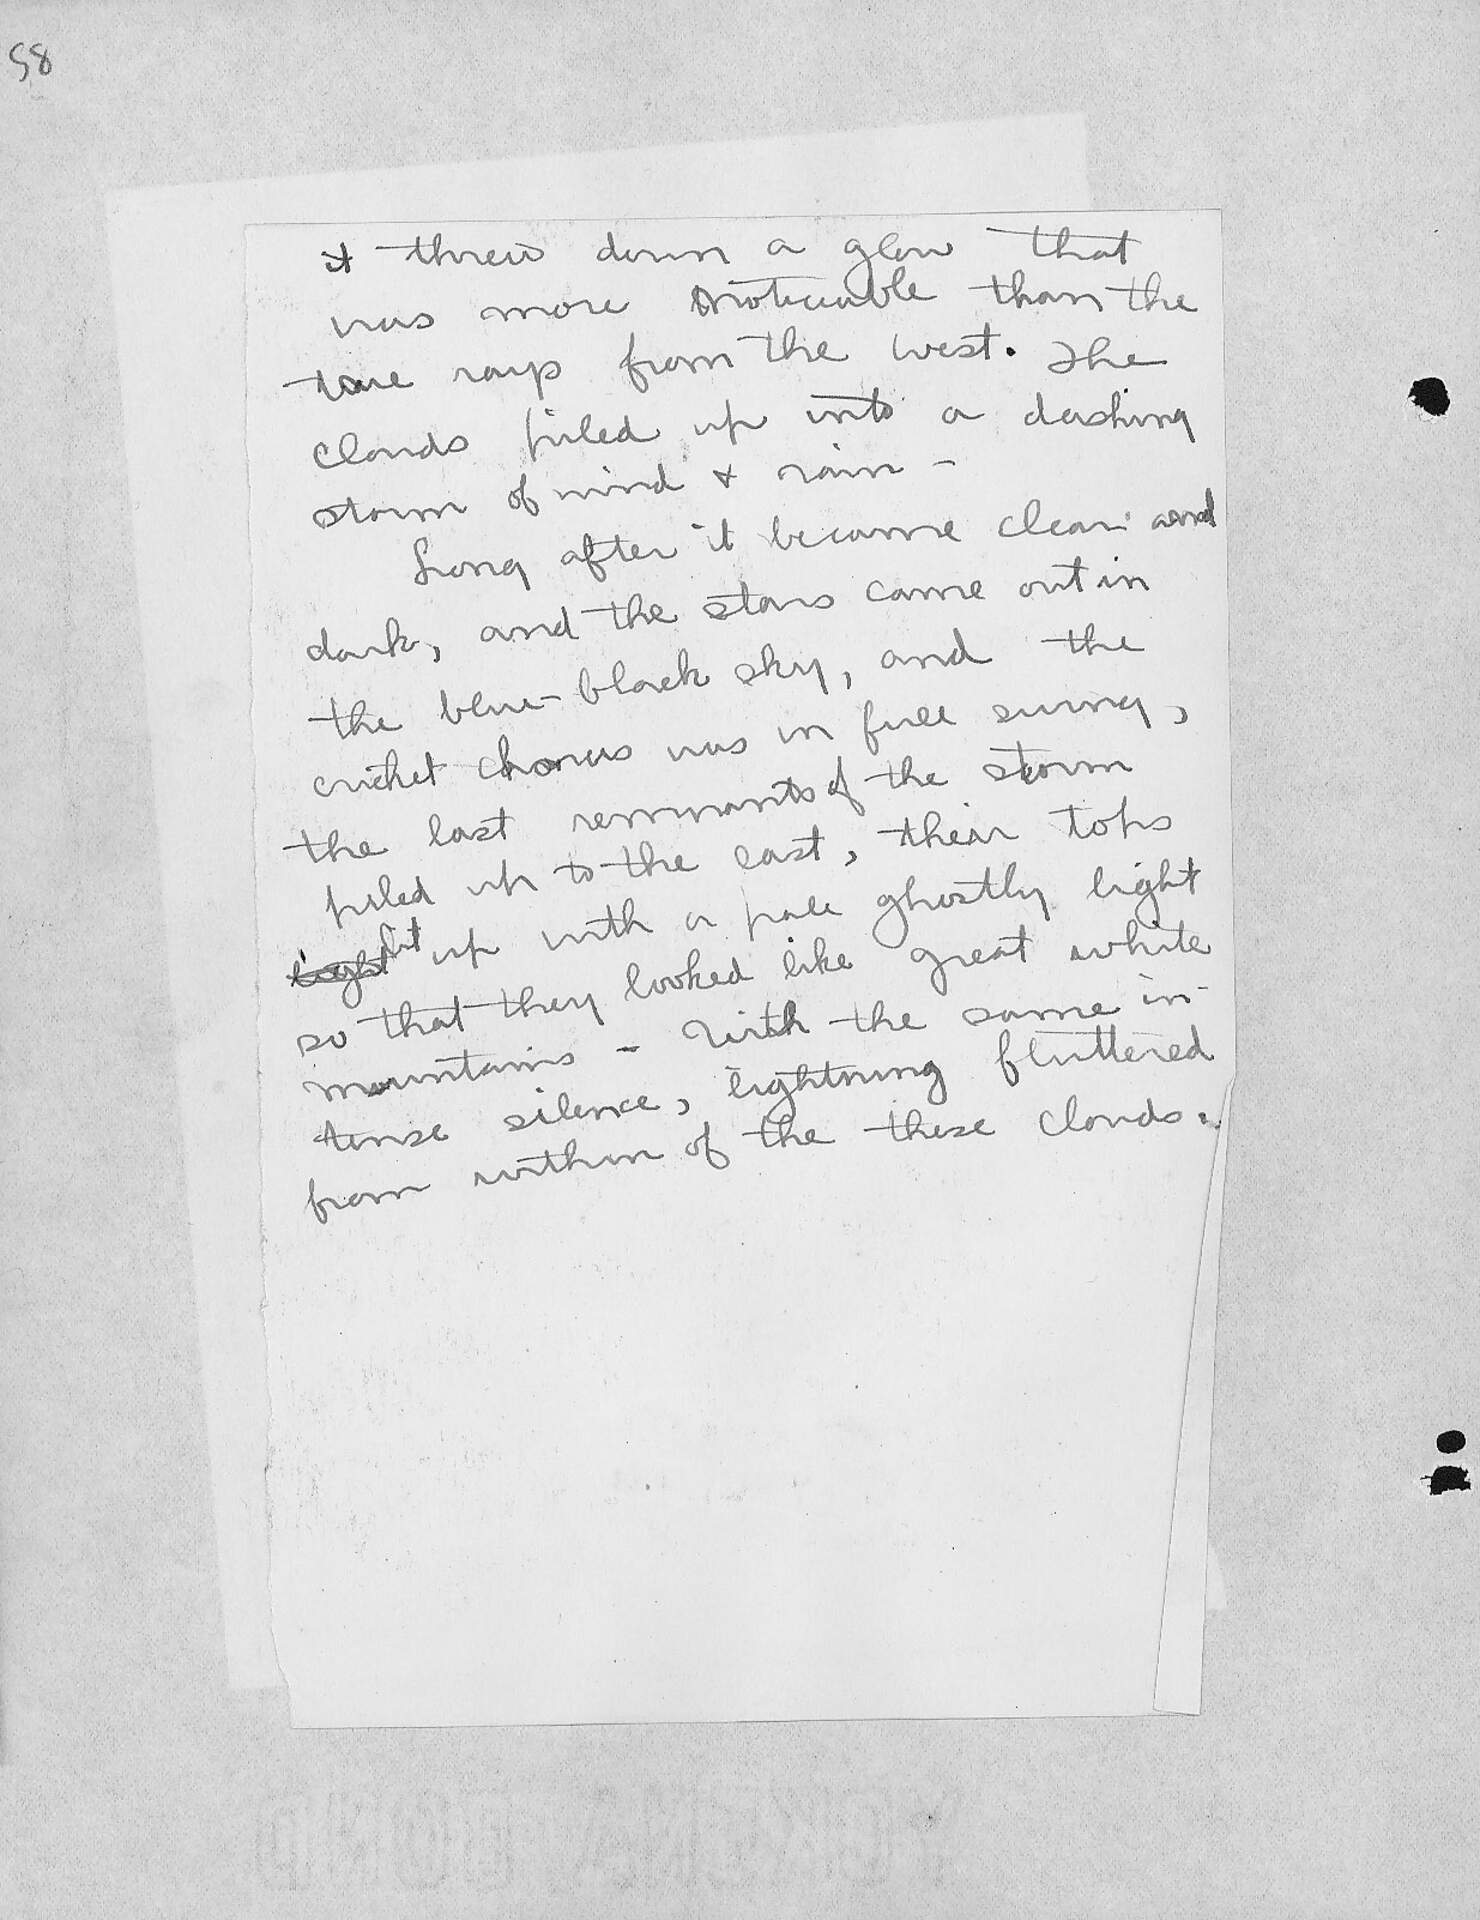 58
it threw down a glow that
was more noticeable than the
true rays from the west. The
clouds piled up into a dashing
storm of wind & rain -
Long after it became clear and
dark, and the stars came out in
the blue-black sky, and the
cricket chorus was in full swing,
the last remnants of the storm
piled up to the east, their tops
light lit up with a pale ghostly light
so that they looked like great white
mountains - With the same in-
tense silence, lightning fluttered
from within of the these clouds.